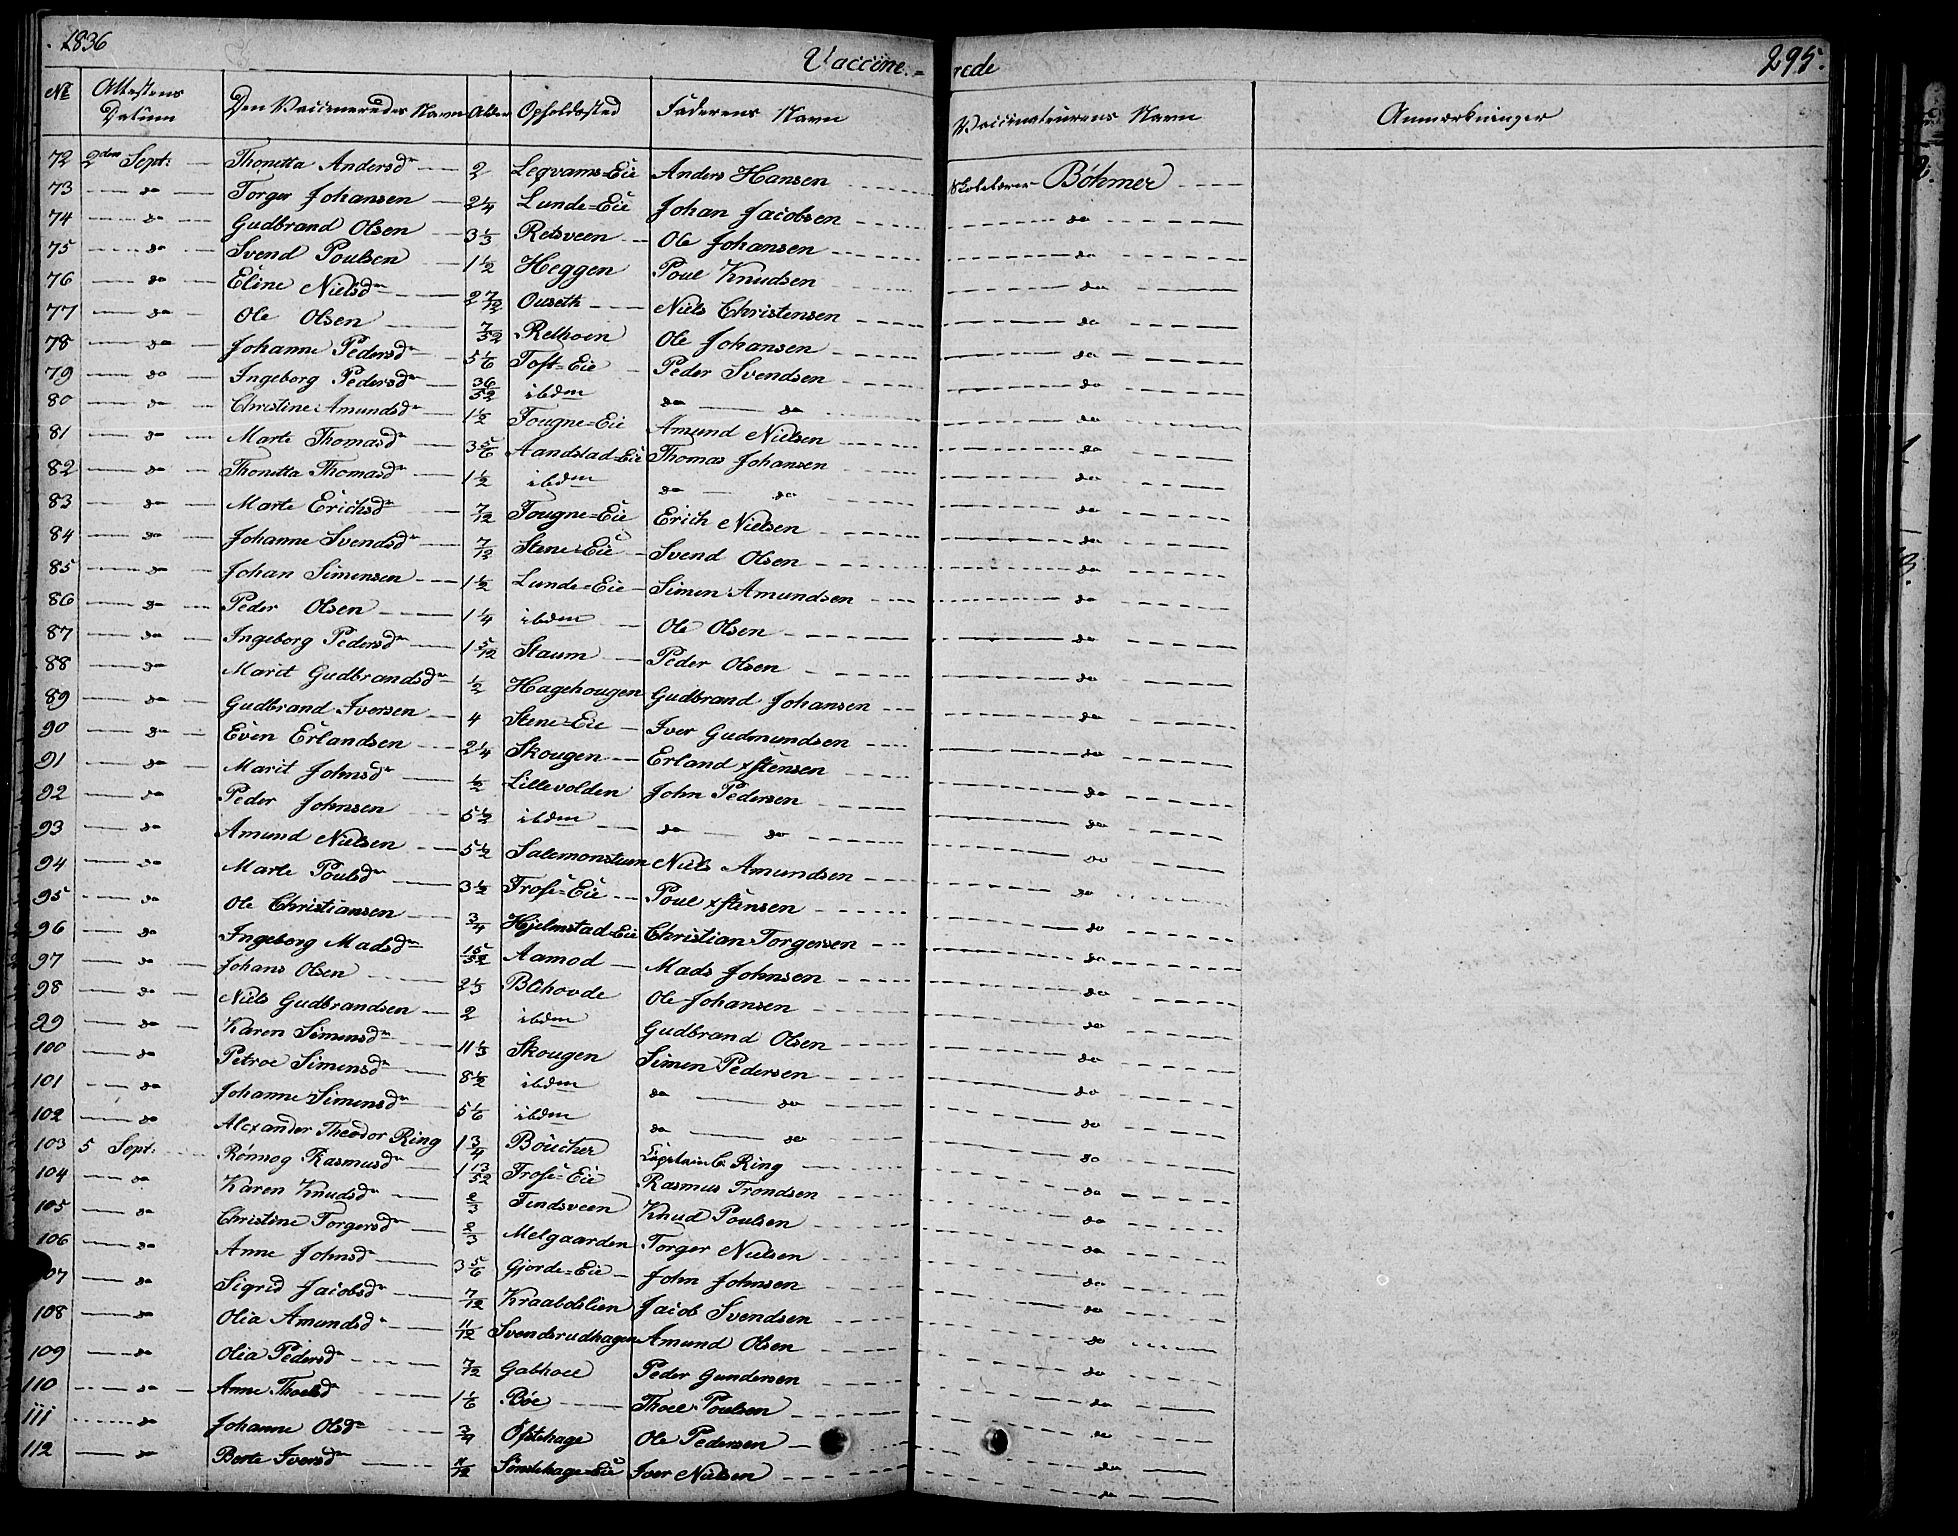 1836 Vaccinerede 295.
No Attestens Datum Den Vaccineredes Navn Alder Opholdssted Faderens Navn Vaccinateurens Navn Anmærkninger
72 2den Sept: Thonetta Andersdr 2 Leqvams=Eie Anders Hansen Skolelærer Böhmer
73 do Torger Johansen 2 1/4 Lunde=Eie Johan Jacobsen do
74 do Gudbrand Olsen 3 1/3 Retsveen Ole Johansen do
75 do Svend Poulsen 1 1/2 Heggen Poul Knudsen do
76 do Eline Nielsdr 2 7/12 Ouseth Niels Christensen do
77 do Ole Olsen 7/52 Relhoen Ole Johansen do
78 do Johanne Pedersdr 5 1/6 Toft=Eie Peder Svendsen do
79 do Ingeborg Pedersdr 36/52 ibdm do do do
80 do Christine Amundsdr 1 1/2 Fougne=Eie Amund Nielsen do
81 do Marte Thomasdr 3 5/6 Aandstad=Eie Thomas Johansen do
82 do Thonetta Thomasdr 1 1/2 ibdm do do do
83 do Marte Erichsdr 7/12 Fougne=Eie Erich Nielsen do
84 do Johanne Svendsdr 7/12 Stene=Eie Svend Olsen do
85 do Johan Simensen 1 1/2 Lunde=Eie Simen Amundsen do
86 do Peder Olsen 1 1/4 ibdm Ole Olsen do
87 do Ingeborg Pedersdr 1 5/12 Staum Peder Olsen do
88 do Marit Gudbrandsdr 1/2 Hagehougen Gudbrand Johansen do
89 do Gudbrand Iversen 4 Stene=Eie Iver Gudmundsen do
90 do Even Erlandsen 2 1/4 Skougen Erland xstensen do
91 do Marit Johnsdr 1/2 Lillevolden John Pedersen do
92 do Peder Johnsen 5 1/2 ibdm do do do
93 do Amund Nielsen 5 1/2 Salemonstuen Niels Amundsen do
94 do Marte Poulsdr 3 1/2 Frose=Eie Poul xstensen do
95 do Ole Christiansen 3/4 Hjelmstad=Eie Christian Torgersen do
96 do Ingeborg Madsdr 15/52 Aamod Mads Johnsen do
97 do Johans Olsen 2 1/3 Blehovde Ole Johansen do
98 do Niels Gudbrandsen 2 ibdm Gudbrand Olsen do
99 do Karen Simensdr 11 1/3 Skougen Simen Pedersen do
100 do Petroe Simensdr 8 1/2 ibdm do do do
101 do Johanne Simensdr 5 1/6 ibdm do do do
102 do Alexander Theodor Ring 1 3/4 Böucher Capitain C. Ring do
103 5 Sept: Rönnog Rasmusdr 1 13/52 Frose=Eie Rasmus Trondsen do
104 do Karen Knudsdr 2/3 Findsveen Knud Poulsen do
105 do Christine Torgersdr 2/3 Melgaarden Torger Nielsen do
106 do Anne Johnsdr 3 5/6 Gjorde=Eie John Johnsen do
107 do Sigrid Jacobsdr 7/12 Kraabölslien Jacob Svendsen do
108 do Olia Amundsdr 11/12 Svendsrudhagen Amund Olsen do
109 do Olia Pedersdr 7/12 Gabhoel Peder Gundersen do
110 do Anne Thoelsdr 1 1/6 Böe Thoel Poulsen do
111 do Johanne Olsdr 3/4 Öfstehage Ole Pedersen do
112 do Berte Iversdr 11/12 Sönstehage=Eie Iver Nielsen do